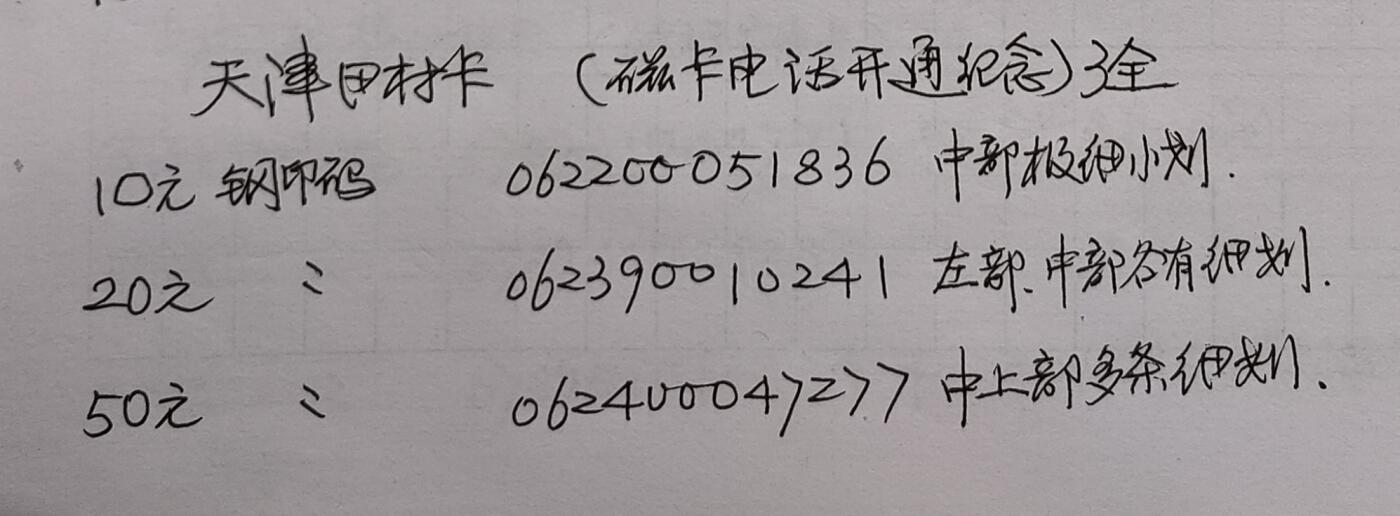 天津田村卡 (磁卡电话开通纪念)3全
10元 钢印码 062200051836 中部极细小划.
20元 〃 062390010241 左部、中部各有细划.
50元 〃 062400047277 中上部多条细划.